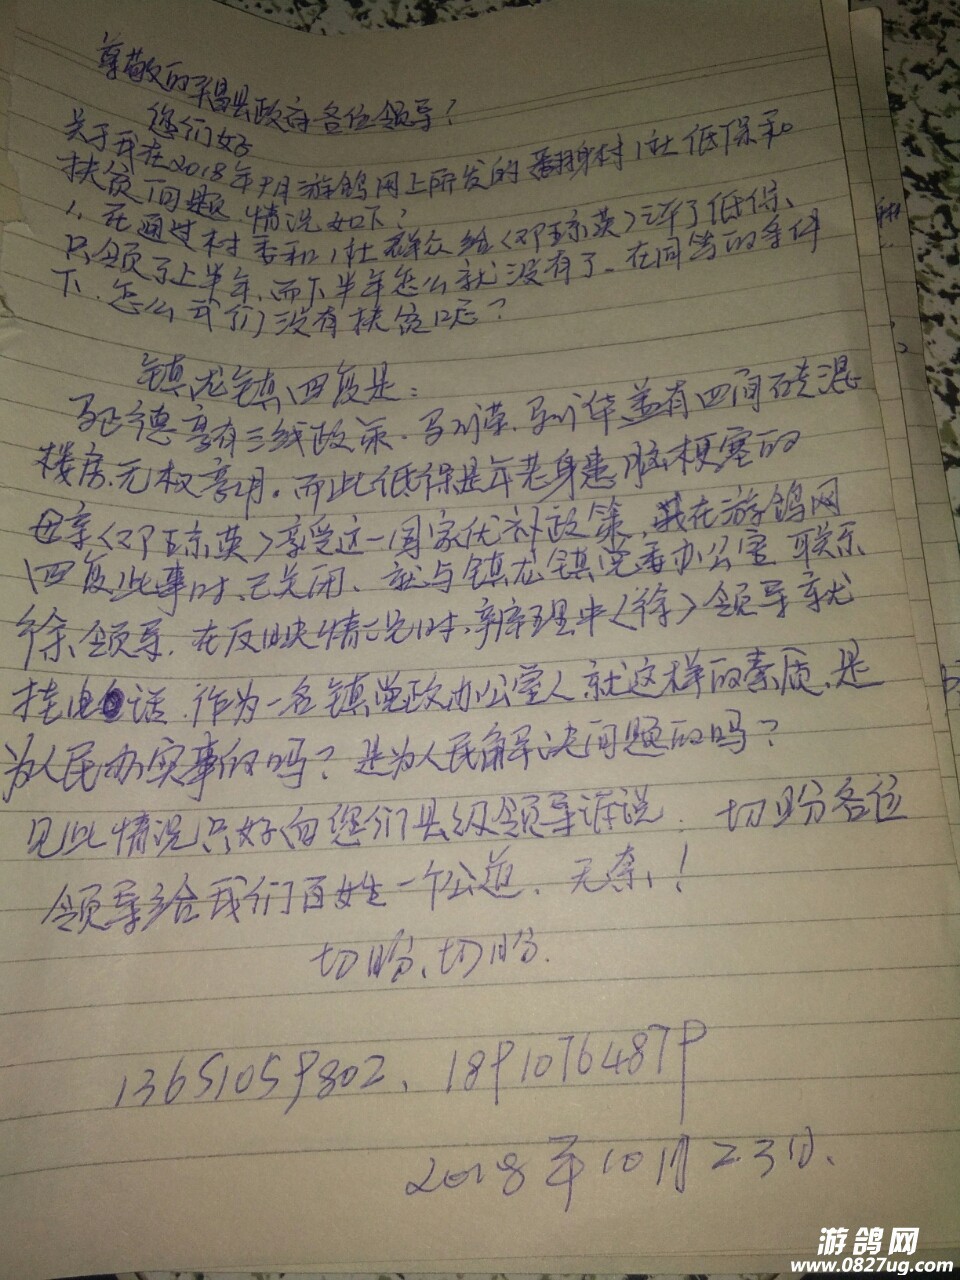 尊敬的平昌县政府各位领导？
您们好
关于我在2018年9月游鸽网上所发的翻身村1社低保和
扶贫问题 情况如下；
1、在通过村委和1社群众给〈邓琼英〉评了低保、
只领了上半年、而下半年怎么就没有了。在同等的条件
下、怎么我们没有扶贫呢？
镇龙镇回复是：
马德享有三线政策、马川荣、马川华盖有四间砖混
楼房、无权享用。而此低保是年老身患脑梗塞的
母亲〈邓琼英〉享受这一国家优补政策、我在游鸽网
回复此事时、已关闭、就与镇龙镇党委办公室 联系
徐、领导、在反映情况时、辩理中〈徐〉领导就
挂电话、作为一名镇党政办公室人就这样的素质、是
为人民办实事的吗？是为人民解决问题的吗？
见此情况只好向您们县级领导诉说、切盼各位
领导给我们百姓一个公道、无奈！
切盼、切盼.
13651059802、18910764879
2018年10月23日、
游鸽网
www.0827ug.com